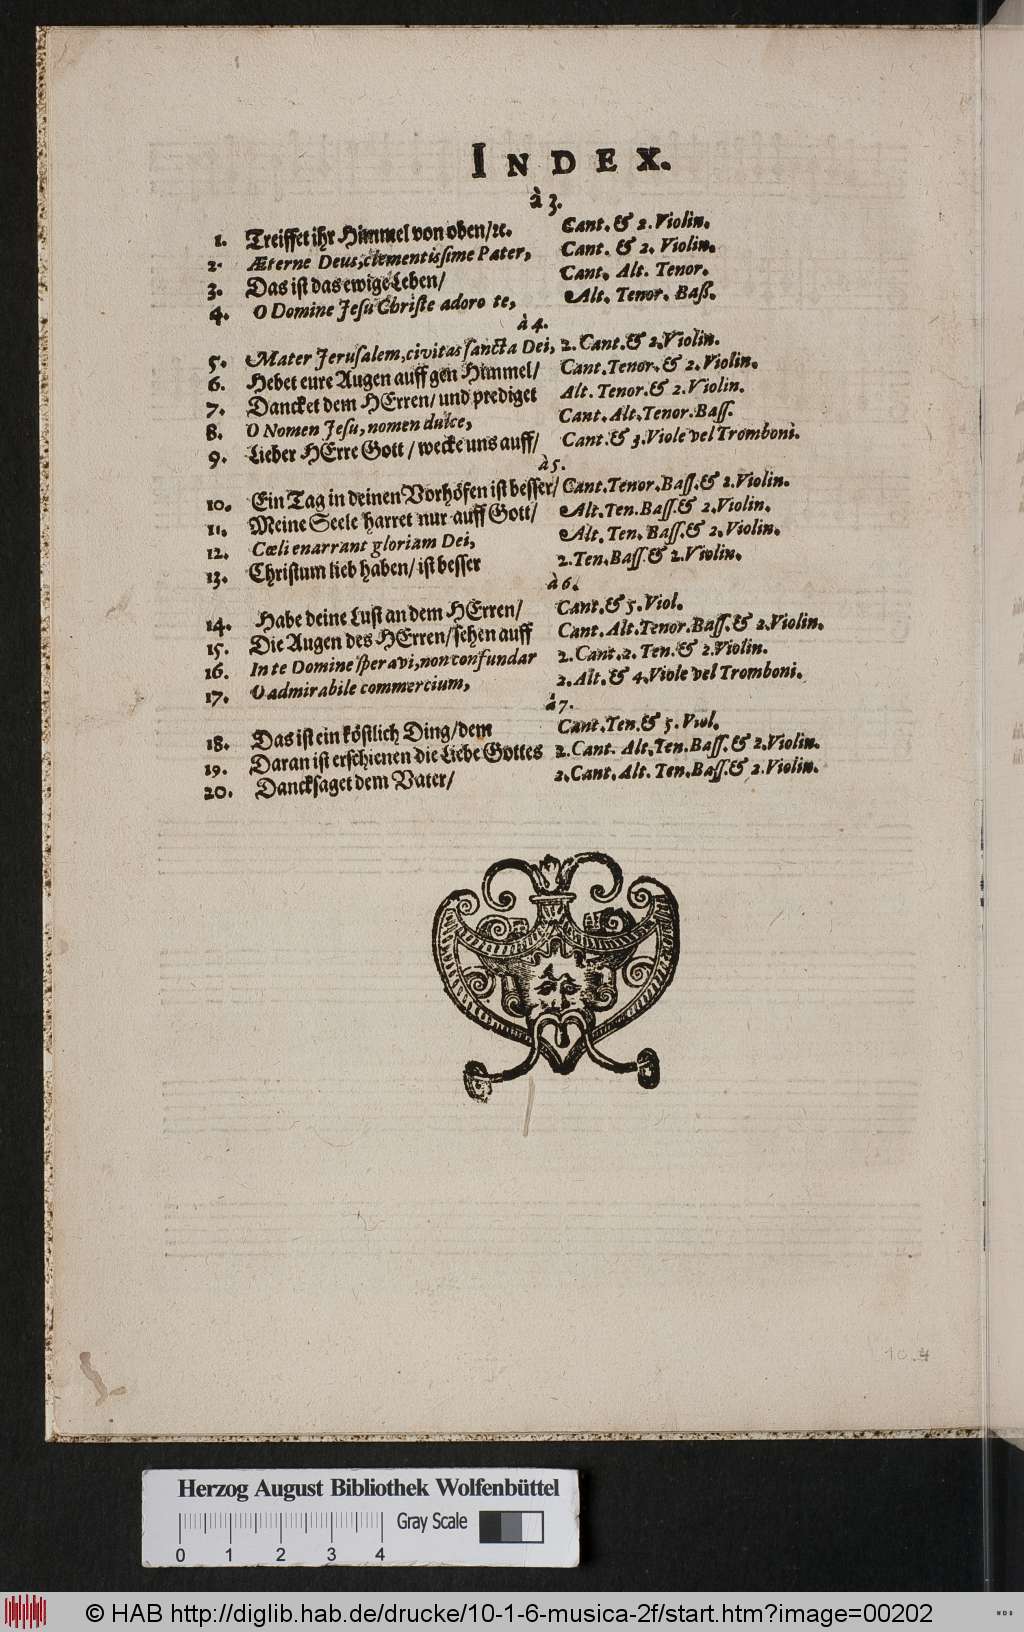 INDEX.
à 3.
1. Treiffet ihr Himmel von oben/ꝛc. Cant. & 2. Violin.
2. Æterne Deus, clementissime Pater, Cant. & 2. Violin.
3. Das ist das ewige Leben/ Cant. Alt. Tenor.
4. O Domine Jesu Christe adoro te, Alt. Tenor. Baß.
à 4.
5. Mater Jerusalem, civitas sancta Dei, 2. Cant. & 2. Violin.
6. Hebet eure Augen auff gen Himmel/ Cant. Tenor. & 2. Violin.
7. Dancket dem HErren/ und prediget Alt. Tenor. & 2. Violin.
8. O Nomen Jesu, nomen dulce, Cant. Alt. Tenor. Bass.
9. Lieber HErre Gott/ wecke uns auff/ Cant. & 3. Viole vel Tromboni.
à 5.
10. Ein Tag in deinen Vorhöfen ist besser/ Cant. Tenor. Bass. & 2. Violin.
11. Meine Seele harret nur auff Gott/ Alt. Ten. Bass. & 2. Violin.
12. Cœli enarrant gloriam Dei, Alt. Ten. Bass. & 2. Violin.
13. Christum lieb haben/ ist besser 2. Ten. Bass. & 2. Violin.
à 6.
14. Habe deine Lust an dem HErren/ Cant. & 5. Viol.
15. Die Augen des HErren/ sehen auff Cant. Alt. Tenor. Bass. & 2. Violin.
16. In te Domine speravi, non confundar 2. Cant. 2. Ten. & 2. Violin.
17. O admirabile commercium, 2. Alt. & 4. Viole vel Tromboni.
à 7.
18. Das ist ein köstlich Ding/ dem Cant. Ten. & 5. Viol.
19. Daran ist erschienen die Liebe Gottes 2. Cant. Alt. Ten. Bass. & 2. Violin.
20. Dancksaget dem Vater/ 2. Cant. Alt. Ten. Bass. & 2. Violin.
Herzog August Bibliothek Wolfenbüttel
Gray Scale
0 1 2 3 4
© HAB http://diglib.hab.de/drucke/10-1-6-musica-2f/start.htm?image=00202